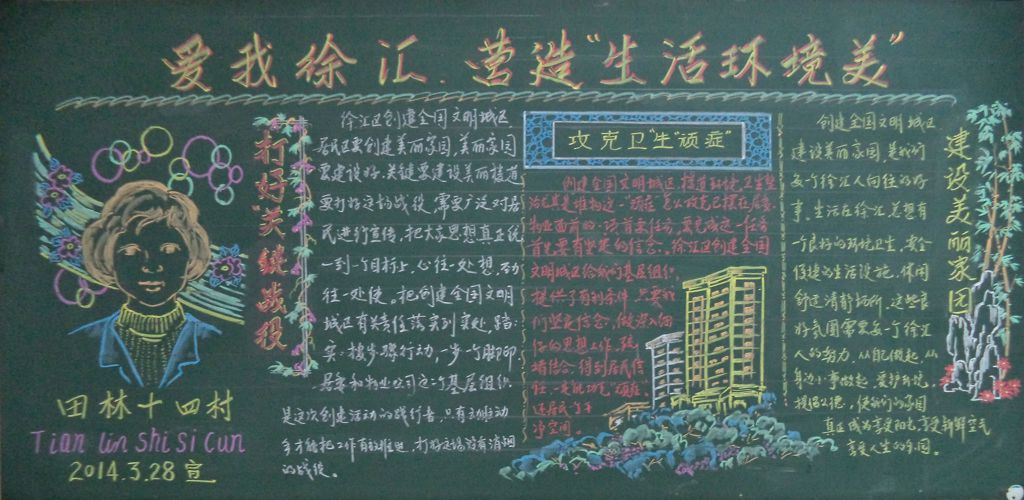 爱我徐汇.营造“生活环境美”
打好关键战役
徐汇区创建全国文明城区
居民区要创建美丽家园,美丽家园
要建设好,关键要建设美丽楼道
要打好这场战役,需要广泛对居
民进行宣传,把大家思想真正统
一到一个目标上,心往一处想,劲
往一处使。把创建全国文明
城区有关责任落实到实处,踏
实按步骤行动,一步一个脚印
居委和物业公司这个基层组织
是这次创建活动的践行者,只有主动
才能把工作有效推进,打好这场没有消烟
的战役。
攻克卫“生”顽症”
创建全国文明城区,楼道环境,卫生整
物业面前的一项首要任务,要完成这一任务
首先要有坚定的信念。徐汇区创建全国
文明城区给我们基层组织
提供了有利条件,只要我
们坚定信念,做深入细
任,一定能攻克“顽症”
还居民一个干
净空间。
创建全国文明城区
建设美丽家园,是我们
每个徐汇人向往的好
事。生活在徐汇,想有
一个良好的环境卫生,安全
便捷的生活设施,休闲
舒适清静场所,这些良
好氛围需要每一个徐汇
人的努力,从自己做起,从
身边小事做起,爱护环境,
规范公德,使我们的家园
真正成为享受阳光,享受新鲜空气
享受人生的乐园。
建设美丽家园
田林十四村
Tian lin Shi Si Cun
2014.3.28 宣